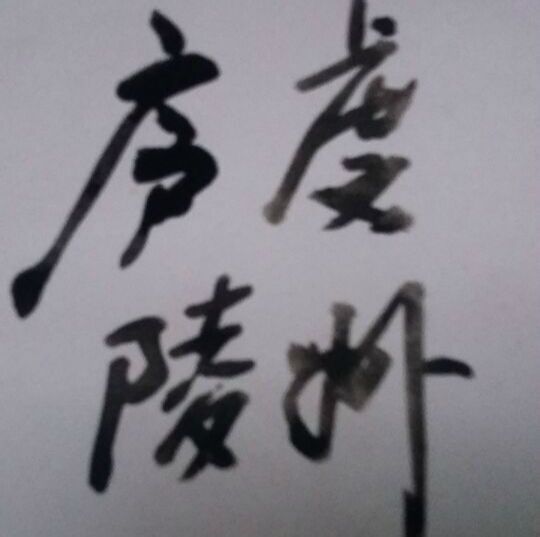 虔州
庐陵